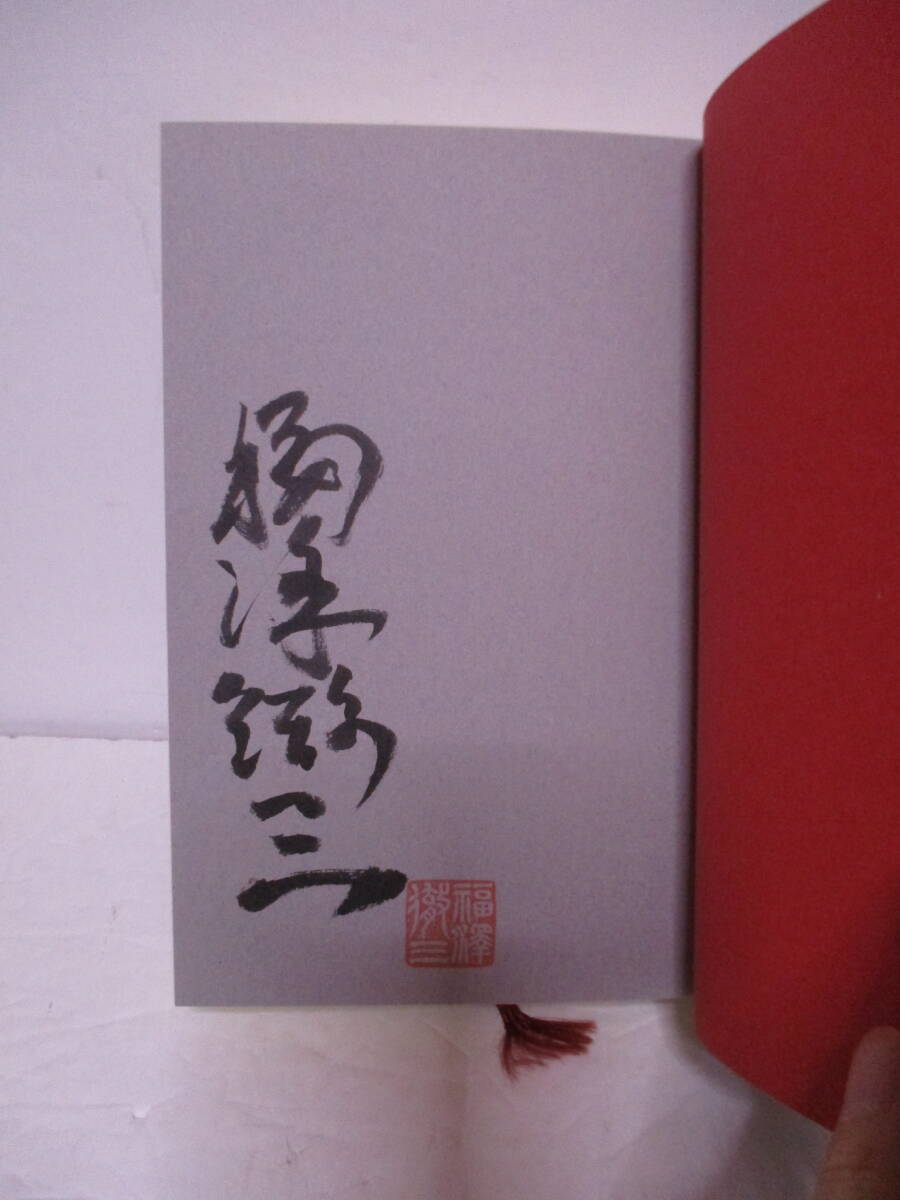 福澤徹三
福澤
徹三